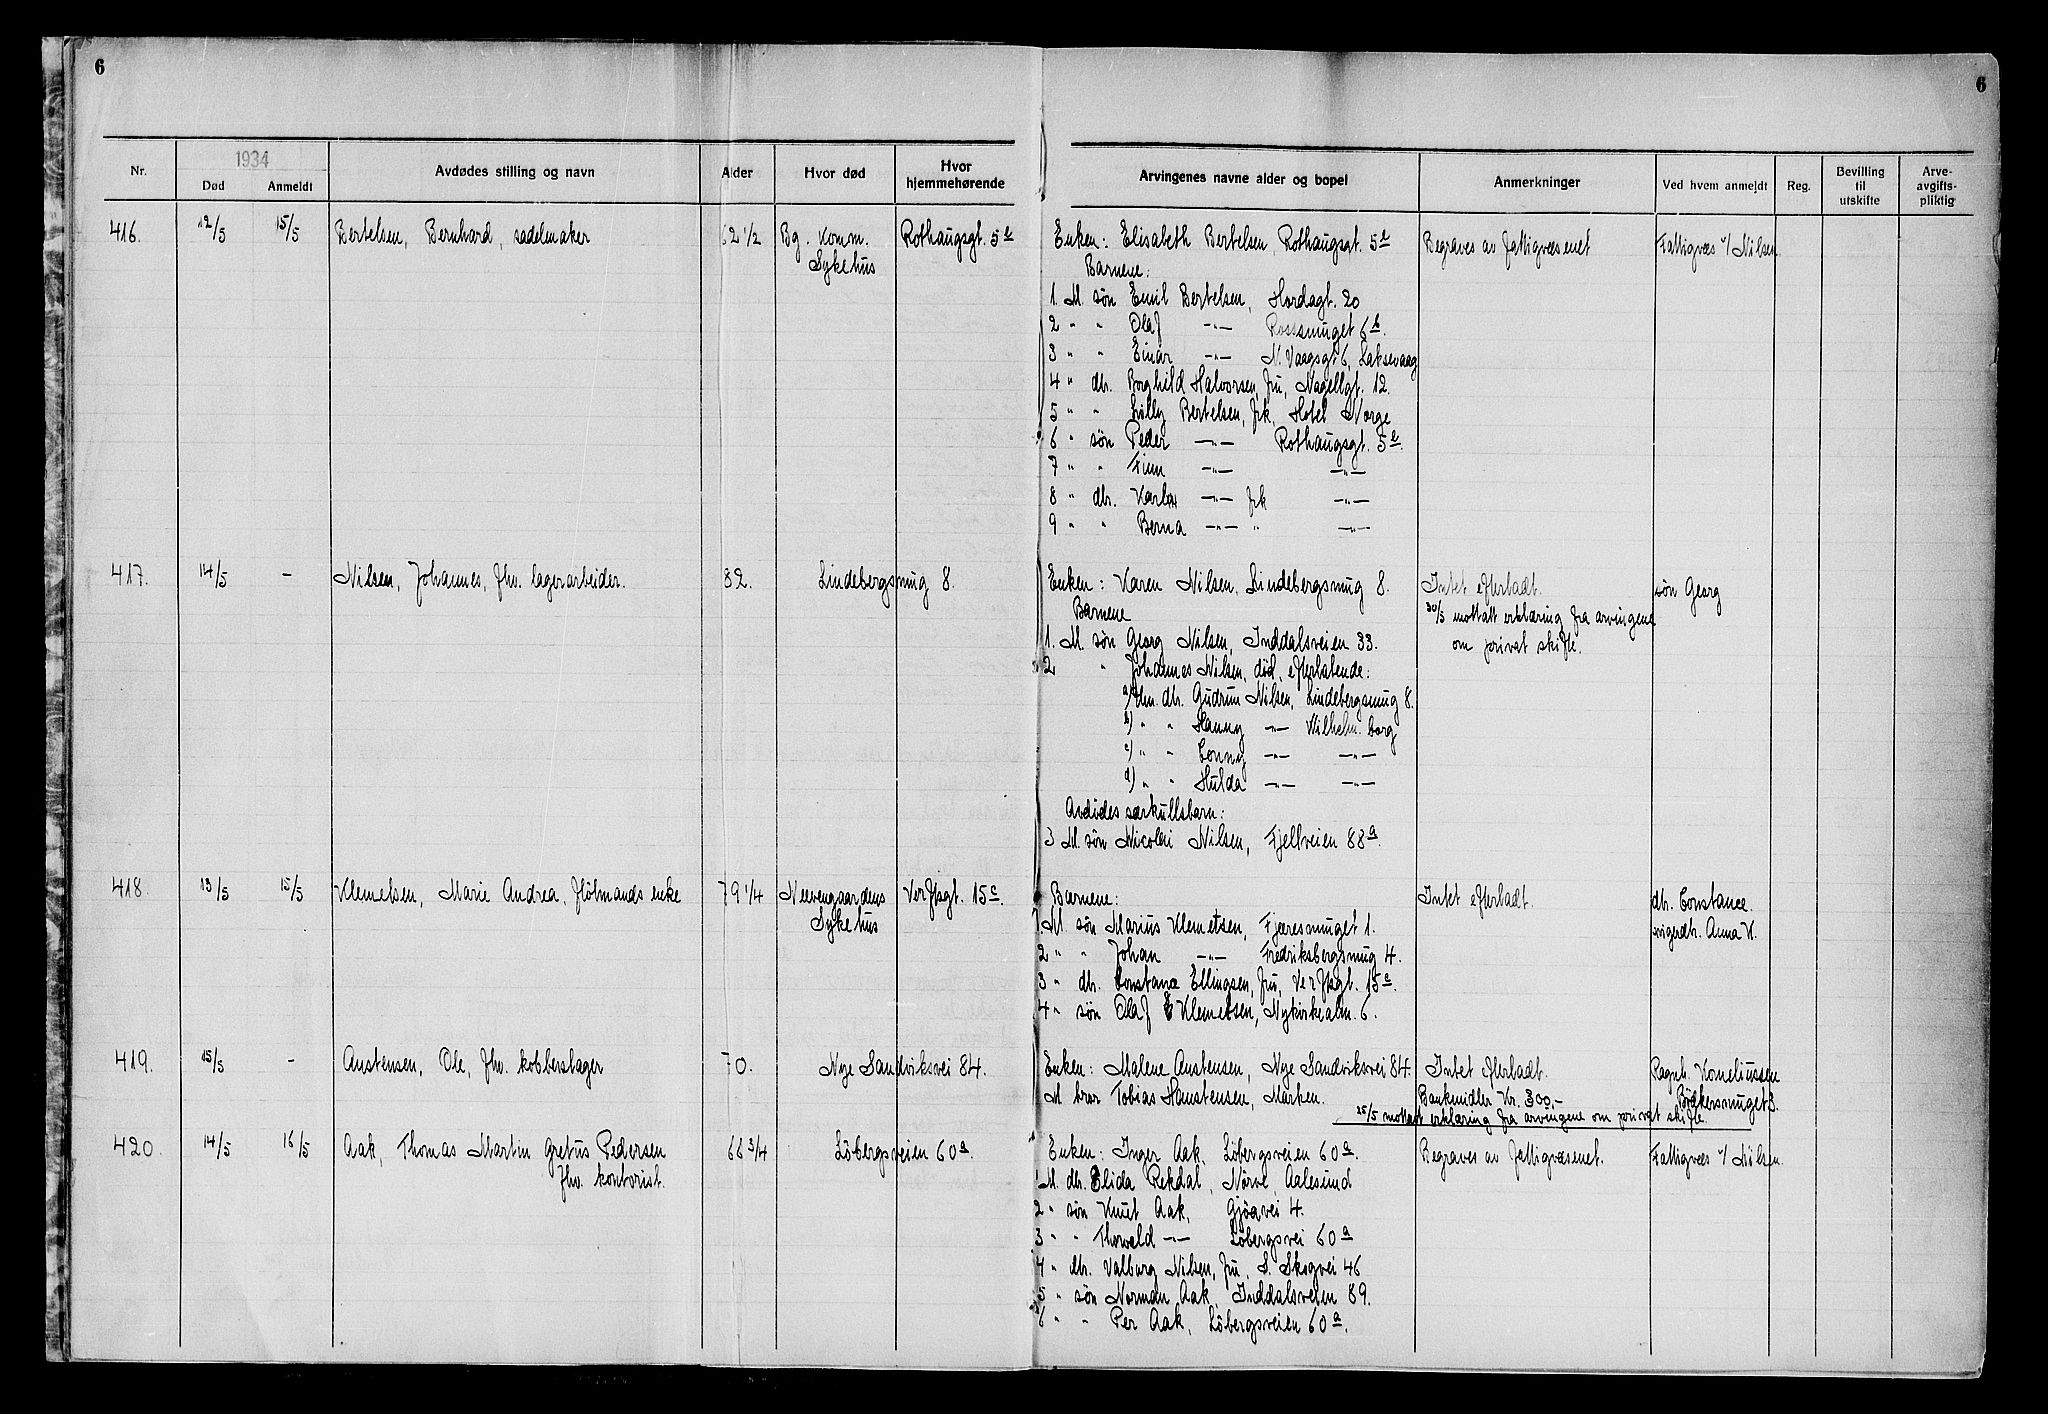 6
6
Nr.
1934
Død
Anmeldt
Avdødes stilling og navn
Alder
Hvor død
Hvor
hjemmehørende
Arvingenes navne alder og bopel
Anmerkninger
Ved hvem anmeldt
Reg.
Bevilling
til
utskifte
Arve-
avgifts-
pliktig
416. 12/5 15/5 Bertelsen, Bernhard, sadelmaker 62 1/2 Bg. Komm. Rothaugsgt. 5e
Sykehus
Enken: Elisabeth Bertelsen, Rothaugsgt. 5e Begraves av fattigvæsenet Fattigvæs v/ Nilsen
Barnene:
1. M. søn Emil Bertelsen, Hordagt. 20
2 " " Olaf -"- Rosssmuget 6b
3 " " Einar -"- N. Vaagsgt. 6, Laksevaag
4 " dtr. Borghild Halvorsen, fru, Nagellgt. 12.
5 " " Lolly Bertelsen, frk, Hotel Norge
6 " søn Peder -"- Rothaugsgt. 5e.
7 " " Finn -"- -"-
8 " dtr. Karla -"- frk -"-
9 " " Berna -"- " -"-
417. 14/5 - Nilsen, Johannes, fhv. lagerarbeider. 82. Lindebergsmug 8.
Enken: Karen Nilsen, Lindebergsmug 8. Intet efterladt. søn Georg
Barnene 30/5 mottatt erklæring fra arvingene
1. M. søn Georg Nilsen, Inddalsveien 33. om privat skifte.
2 " Johannes Nilsen, død, efterlatende:
a) Um. dtr. Gudrun Nilsen, Lindebergsmug 8.
b) " " Hanny -"- Wilhelm.borg
c) " " Conny -"- -"-
d) " " Hulda -"- -"-
Avdødes særkullsbarn:
3 M. søn Nicolai Nilsen, Fjellveien 88a.
418. 13/5 15/5 Klemetsen, Marie Andrea, fløtmands enke 79 1/4 Neevengaardens Verftsgt. 15c.
Sykehus
Barnene: Intet efterladt. dtr. Constance.
1. M. søn Marius Klemetsen, Fjæresmuget 1. svigerdtr. Anna K.
2 " " Johan -"- Fredriksbergsmug 4.
3 " dtr. Constance Ellingsen, fru, Verftsgt. 15c.
4 " søn Olaf E Klemetsen, Nykirkealm. 6.
419. 15/5 - Anstensen, Ole, fhv. kobberslager 70. Nye Sandviksvei 84.
Enken: Malene Anstensen, Nye Sandviksvei 84. Intet efterladt. Ragnh. Korneliussen
M. bror Tobias Hanstensen, Marken. Bankmidler Kr. 300,- Bøkersmuget 3.
25/5 mottatt erklæring fra arvingene om privat skifte.
420. 14/5 16/5 Aak, Thomas Martin Gretus Pedersen 66 3/4 Løbergsveien 60a.
fhv. kontorist.
Enken: Inger Aak, Løbergsveien 60a. Begraves av fattigvæsenet. Fattigvæs v/ Nilsen.
1 M. dtr. Elida Rekdal, Nørve, Aalesund
2 " søn Knut Aak, Gjøavei 4.
3 " " Thorvald -"- Løbergsvei 60a
4 " dtr. Valborg Nilsen, fru, S. Skogvei 46
5 " søn Norman Aak, Inddalsveien 89.
6 " " Per Aak, Løbergsveien 60a.